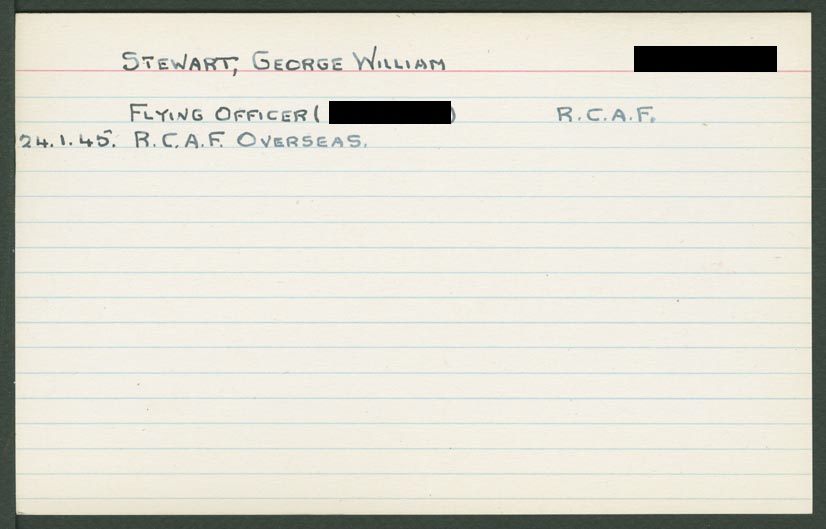 STEWART, GEORGE WILLIAM
FLYING OFFICER ( ) R.C.A.F.
24.1.45. R.C.A.F. OVERSEAS.